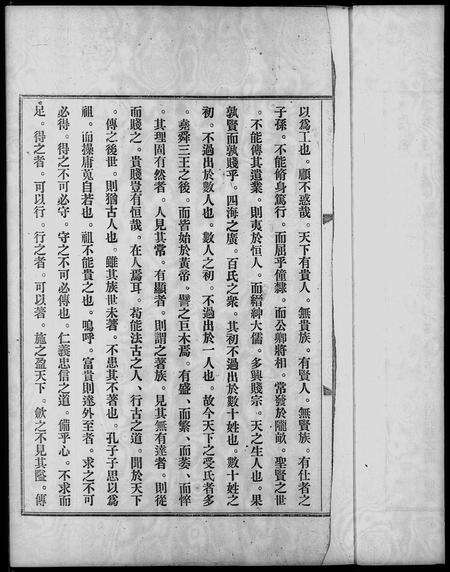 以爲工也。顧不惑哉。天下有貴人。無貴族。有賢人。無賢族。有仕者之
子孫。不能脩身篤行。而屈乎僮隸。而公卿將相。常發於隴畝。聖賢之世
。不能傳其遺業。則夷於恒人。而縉紳大儒。多興賤宗。天之生人也。果
孰賢而孰賤乎。四海之廣。百氏之衆。其初不過出於數十姓也。數十姓之
初。不過出於數人也。數人之初。不過出於一人也。故今天下之受氏者多
。堯舜三王之後。而皆始於黃帝。譬之巨木焉。有盛、而繁、而萎、而悴
。其理固有然者。人見其常。有顯者。則謂之著族。見其無有達者。則從
而賤之。貴賤豈有恒哉。在人焉耳。苟能法古之人、行古之道。聞於天下
。傳之後世。則猶古人也。雖其族世未著。不患其不著也。孔子子思以爲
祖。而操庸蒐自若也。祖不能貴之也。嗚呼。富貴則達外至者。求之不可
必得。得之不可必守。守之不可必傳也。仁義忠信之道。備乎心。不求而
足。得之者。可以行。行之者。可以著。施之盈天下。歛之不見其隘。傳